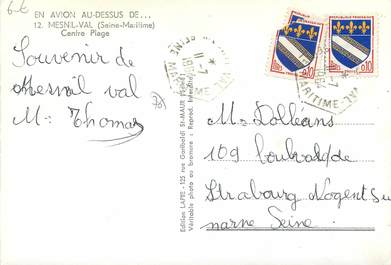 6-6
EN AVION AU-DESSUS DE...
12. MESNIL-VAL (Seine-Maritime)
Centre Plage
Souvenir de
Mesnil val
M: Thomas
Edition LAPIE - 125 rue Garibaldi St-MAUR
Véritable photo au bromure - Reprod. Interdite
SEINE MARITIME
11-7
0,10
0,10
M: Dolléans
109 boulvard de
Strabourg Nogent su
marne Seine.